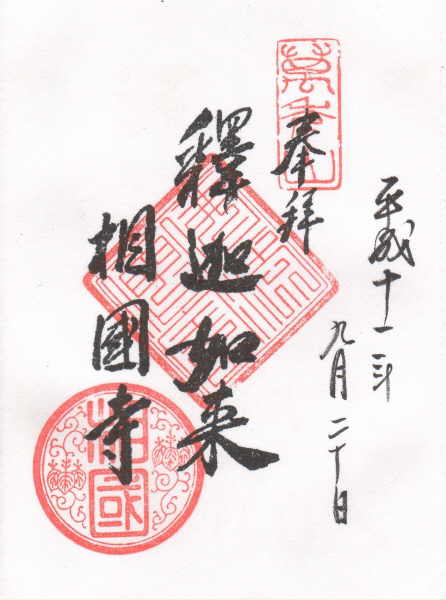 平成十一年
九月二十日
萬年山
奉拝
釋迦如来
相國寺
相國